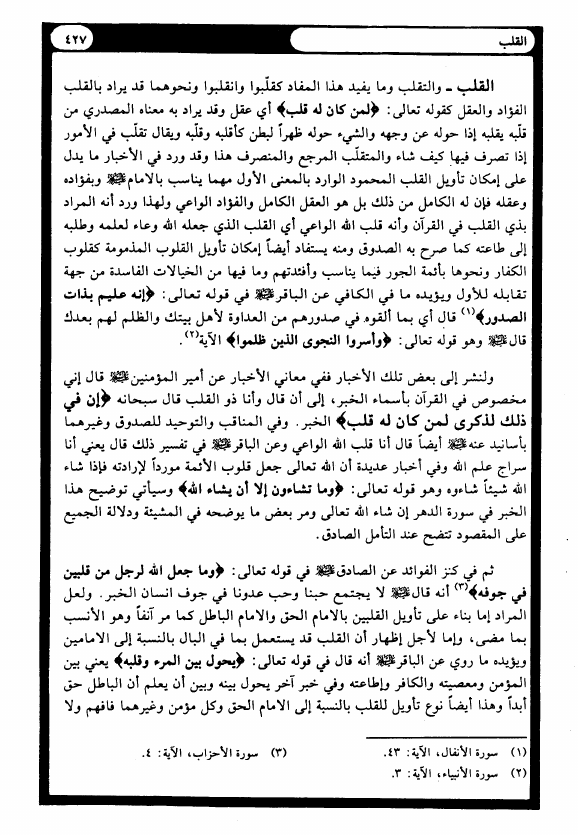 القلب
٤٢٧
القلب ـ والتقلب وما يفيد هذا المفاد كقلّبوا وانقلبوا ونحوهما قد يراد بالقلب
الفؤاد والعقل كقوله تعالى: ﴿لمن كان له قلب﴾ أي عقل وقد يراد به معناه المصدري من
قلبه يقلبه إذا حوله عن وجهه والشيء حوله ظهراً لبطن كأقلبه وقلّبه ويقال تقلّب في الأمور
إذا تصرف فيها كيف شاء والمتقلّب المرجع والمنصرف هذا وقد ورد في الأخبار ما يدل
على إمكان تأويل القلب المحمود الوارد بالمعنى الأول مهما يناسب بالامام ﷺ وبفؤاده
وعقله فإن له الكامل من ذلك بل هو العقل الكامل والفؤاد الواعي ولهذا ورد أنه المراد
بذي القلب في القرآن وأنه قلب الله الواعي أي القلب الذي جعله الله وعاء لعلمه وطلبه
إلى طاعته كما صرح به الصدوق ومنه يستفاد أيضاً إمكان تأويل القلوب المذمومة كقلوب
الكفار ونحوها بأئمة الجور فيما يناسب وأفئدتهم وما فيها من الخيالات الفاسدة من جهة
تقابله للأول ويؤيده ما في الكافي عن الباقر ﷺ في قوله تعالى: ﴿إنه عليم بذات
الصدور﴾(١) قال أي بما ألقوه في صدورهم من العداوة لأهل بيتك والظلم لهم بعدك
قال ﷺ وهو قوله تعالى: ﴿وأسروا النجوى الذين ظلموا﴾ الآية(٢).
ولنشر إلى بعض تلك الأخبار ففي معاني الأخبار عن أمير المؤمنين ﷺ قال إني
مخصوص في القرآن بأسماء الخبر، إلى أن قال وأنا ذو القلب قال سبحانه ﴿إن في
ذلك لذكرى لمن كان له قلب﴾ الخبر. وفي المناقب والتوحيد للصدوق وغيرهما
بأسانيد عنه ﷺ أيضاً قال أنا قلب الله الواعي وعن الباقر ﷺ في تفسير ذلك قال يعني أنا
سراج علم الله وفي أخبار عديدة أن الله تعالى جعل قلوب الأئمة مورداً لإرادته فإذا شاء
الله شيئاً شاءوه وهو قوله تعالى: ﴿وما تشاءون إلا أن يشاء الله﴾ وسيأتي توضيح هذا
الخبر في سورة الدهر إن شاء الله تعالى ومر بعض ما يوضحه في المشيئة ودلالة الجميع
على المقصود تتضح عند التأمل الصادق.
ثم في كنز الفوائد عن الصادق ﷺ في قوله تعالى: ﴿وما جعل الله لرجل من قلبين
في جوفه﴾(٣) أنه قال ﷺ لا يجتمع حبنا وحب عدونا في جوف انسان الخبر. ولعل
المراد إما بناء على تأويل القلبين بالامام الحق والامام الباطل كما مر آنفاً وهو الأنسب
بما مضى، وإما لأجل إظهار أن القلب قد يستعمل بما في البال بالنسبة إلى الامامين
ويؤيده ما روي عن الباقر ﷺ أنه قال في قوله تعالى: ﴿يحول بين المرء وقلبه﴾ يعني بين
المؤمن ومعصيته والكافر وإطاعته وفي خبر آخر يحول بينه وبين أن يعلم أن الباطل حق
أبداً وهذا أيضاً نوع تأويل للقلب بالنسبة إلى الامام الحق وكل مؤمن وغيرهما فافهم ولا
(١) سورة الأنفال، الآية: ٤٣.
(٣) سورة الأحزاب، الآية: ٤.
(٢) سورة الأنبياء، الآية: ٣.